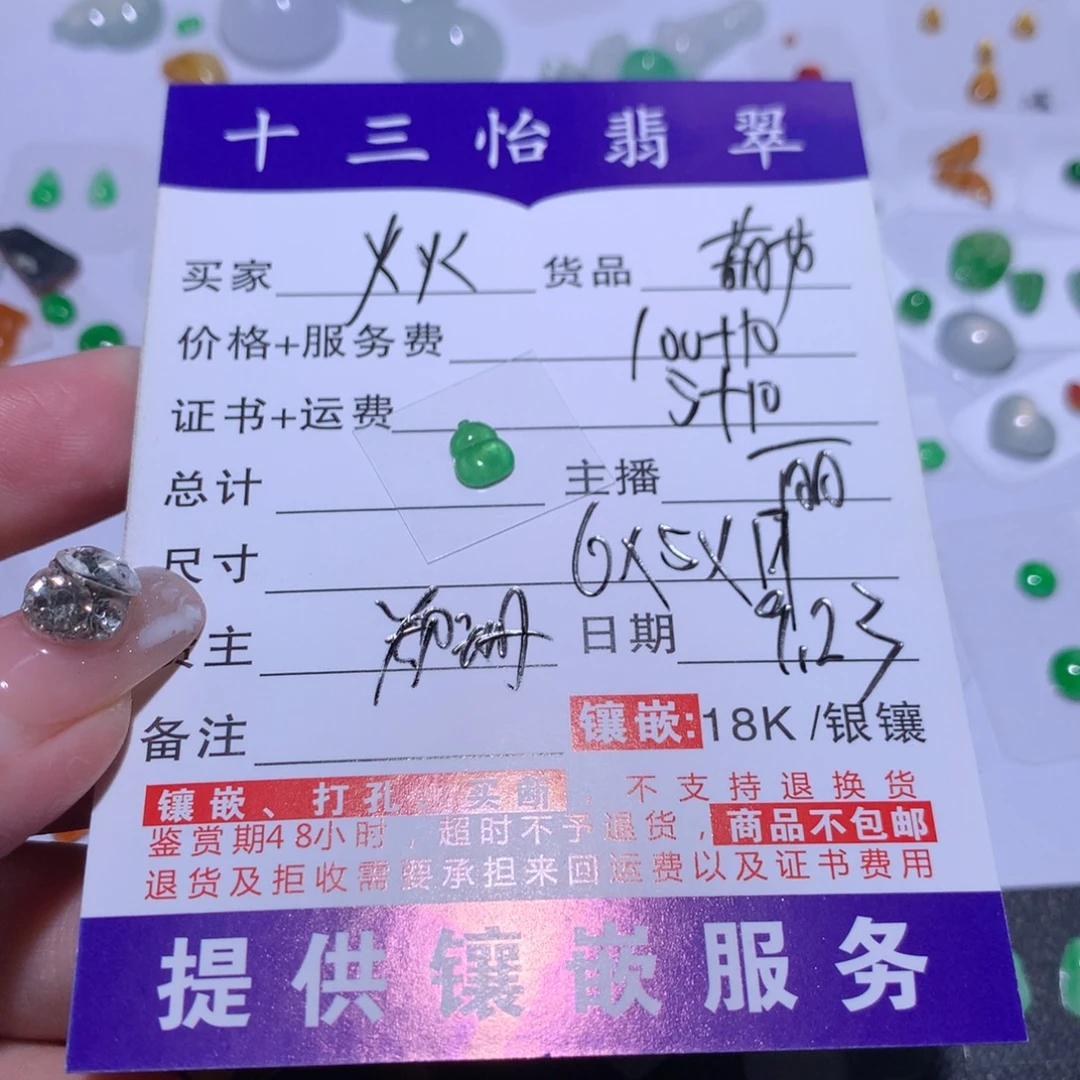 十三怡翡翠
买家 火火 货品 葫芦
价格+服务费 100+10
证书+运费 5+10
总计 主播 丽
尺寸 6X5X
主 日期 9.23
备注 镶嵌:18K/银镶
镶嵌、打孔、买断,不支持退换货
鉴赏期48小时,超时不予退货,商品不包邮
退货及拒收需要承担来回运费以及证书费用
提供镶嵌服务